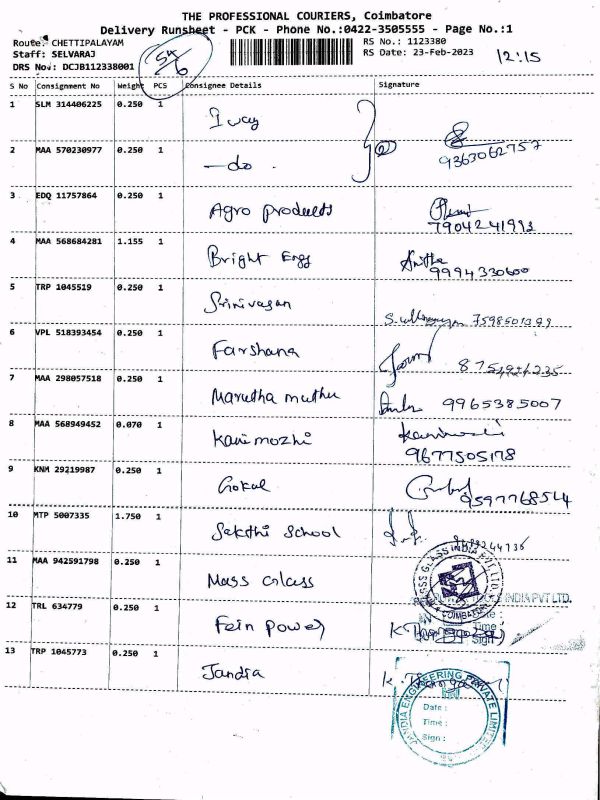 THE PROFESSIONAL COURIERS, Coimbatore
Delivery Runsheet - PCK - Phone No.:0422-3505555 - Page No.:1
Route: CHETTIPALAYAM
RS No.: 1123380
Staff: SELVARAJ
RS Date: 23-Feb-2023
12:15
DRS No.: DCJB112338001
S No Consignment No Weight PCS Consignee Details Signature
1 SLM 314406225 0.250 1
2 MAA 570230977 0.250 1 —do 9363062757
3 EDQ 11757864 0.250 1 Agro products 7904241993
4 MAA 568684281 1.155 1 Bright Engg Anitha 9994330600
5 TRP 1045519 0.250 1 Srinivasan
6 VPL 518393454 0.250 1 Farshana
7 MAA 298057518 0.250 1 Marutha muthu 9965385007
8 MAA 568949452 0.070 1 Kanimozhi Kanimozhi 9677505178
9 KNM 29219987 0.250 1 Gokul 9597768544
10 MTP 5007335 1.750 1 Sakthi School
11 MAA 942591798 0.250 1 Mass Glass
GLASS INDIA PVT. LTD.
COIMBATORE
INDIA PVT LTD.
12 TRL 634779 0.250 1 Fein power
Time :
Sign :
13 TRP 1045773 0.250 1 Jandia
JANDIA ENGINEERING PRIVATE LIMITED
Date :
Time :
Sign :